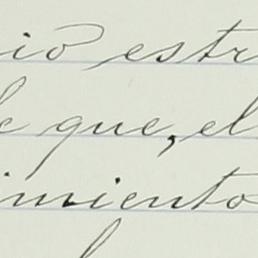 ió estr
e que, el
imiento